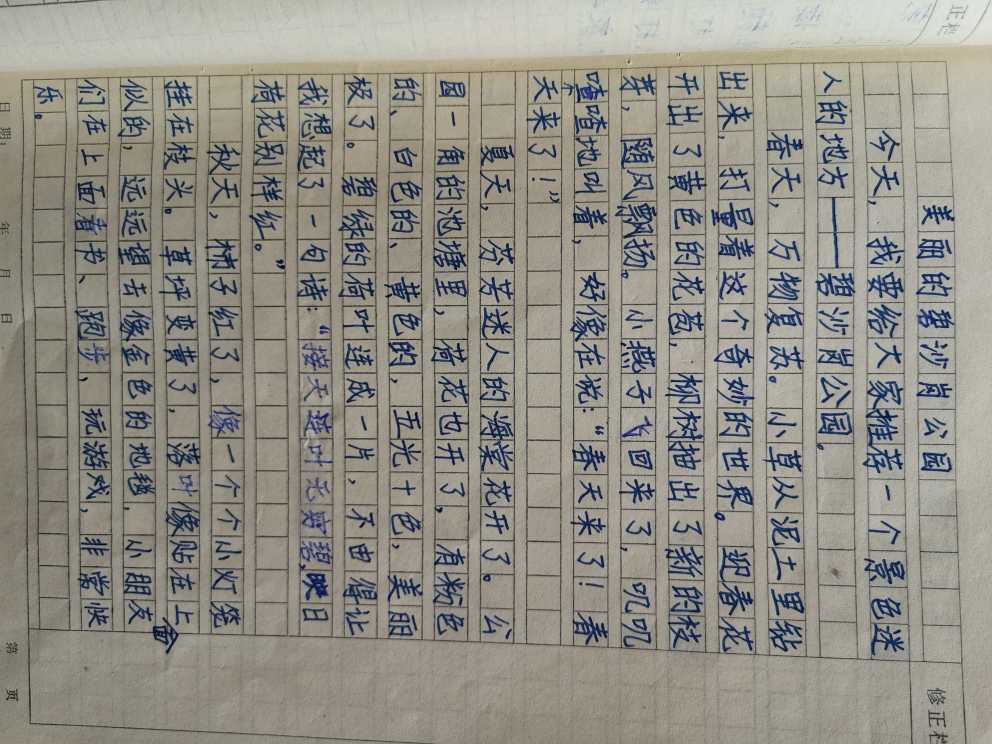 美丽的碧沙岗公园
今天，我要给大家推荐一个景色迷
人的地方——碧沙岗公园。
春天，万物复苏。小草从泥土里钻
出来，打量着这个奇妙的世界。迎春花
开出了黄色的花苞，柳树抽出了新的枝
芽，随风飘扬。小燕子飞回来了，叽叽
喳喳地叫着，好像在说：“春天来了！春
天来了！”
夏天，芬芳迷人的海棠花开了。公
园一角的池塘里，荷花也开了，有粉色
的、白色的、黄色的，五光十色，美丽
极了。碧绿的荷叶连成一片，不由得让
我想起了一句诗：“接天莲叶无穷碧，映日
荷花别样红。”
秋天，柿子红了，像一个个小灯笼
挂在枝头。草坪变黄了，落叶像贴在上面
似的，远远望去像金色的地毯，小朋友
们在上面看书、跑步、玩游戏，非常快
乐。
修正栏
正栏
日期：
年 月 日
第 页